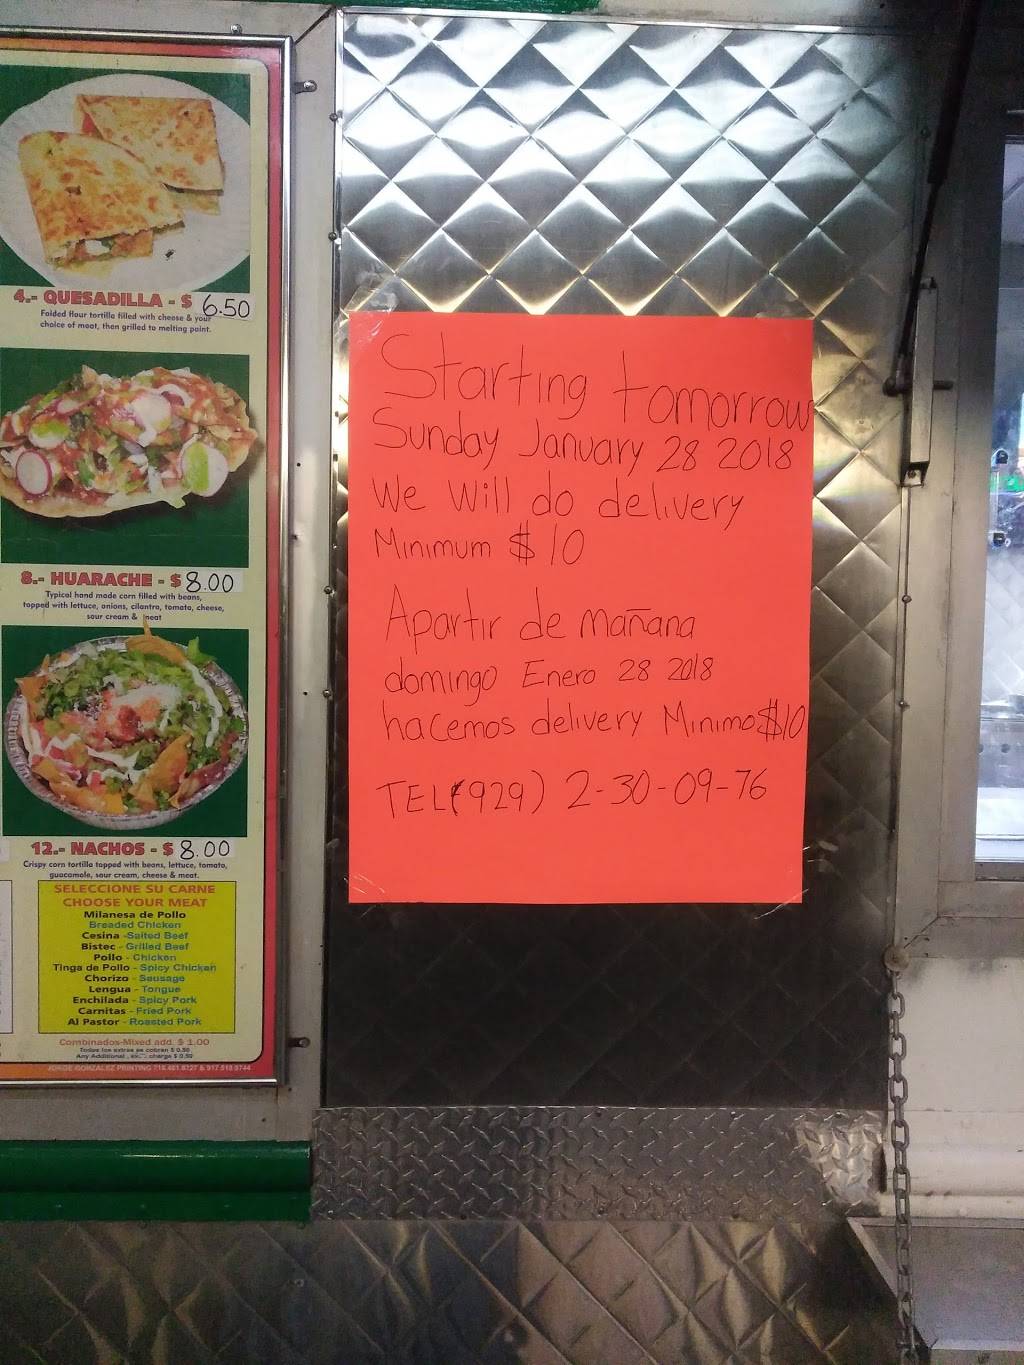 4.- QUESADILLA - $ 6.50
Folded flour tortilla filled with cheese & your
choice of meat, then grilled to melting point.
8.- HUARACHE - $ 8.00
Typical hand made corn filled with beans,
topped with lettuce, onions, cilantro, tomato, cheese,
sour cream & meat
12.- NACHOS - $ 8.00
Crispy corn tortilla topped with beans, lettuce, tomato,
guacamole, sour cream, cheese & meat.
SELECCIONE SU CARNE
CHOOSE YOUR MEAT
Milanesa de Pollo
Breaded Chicken
Cesina - Salted Beef
Bistec - Grilled Beef
Pollo - Chicken
Tinga de Pollo - Spicy Chicken
Chorizo - Sausage
Lengua - Tongue
Enchilada - Spicy Pork
Carnitas - Fried Pork
Al Pastor - Roasted Pork
Combinados-Mixed add. $ 1.00
Todos los extras se cobran $ 0.50
Any Additional, charge $ 0.50
JORGE GONZALEZ PRINTING
Starting tomorrow
Sunday January 28 2018
We will do delivery
Minimum $ 10
Apartir de mañana
domingo Enero 28 2018
hacemos delivery Minimo $10
TEL (929) 2-30-09-76